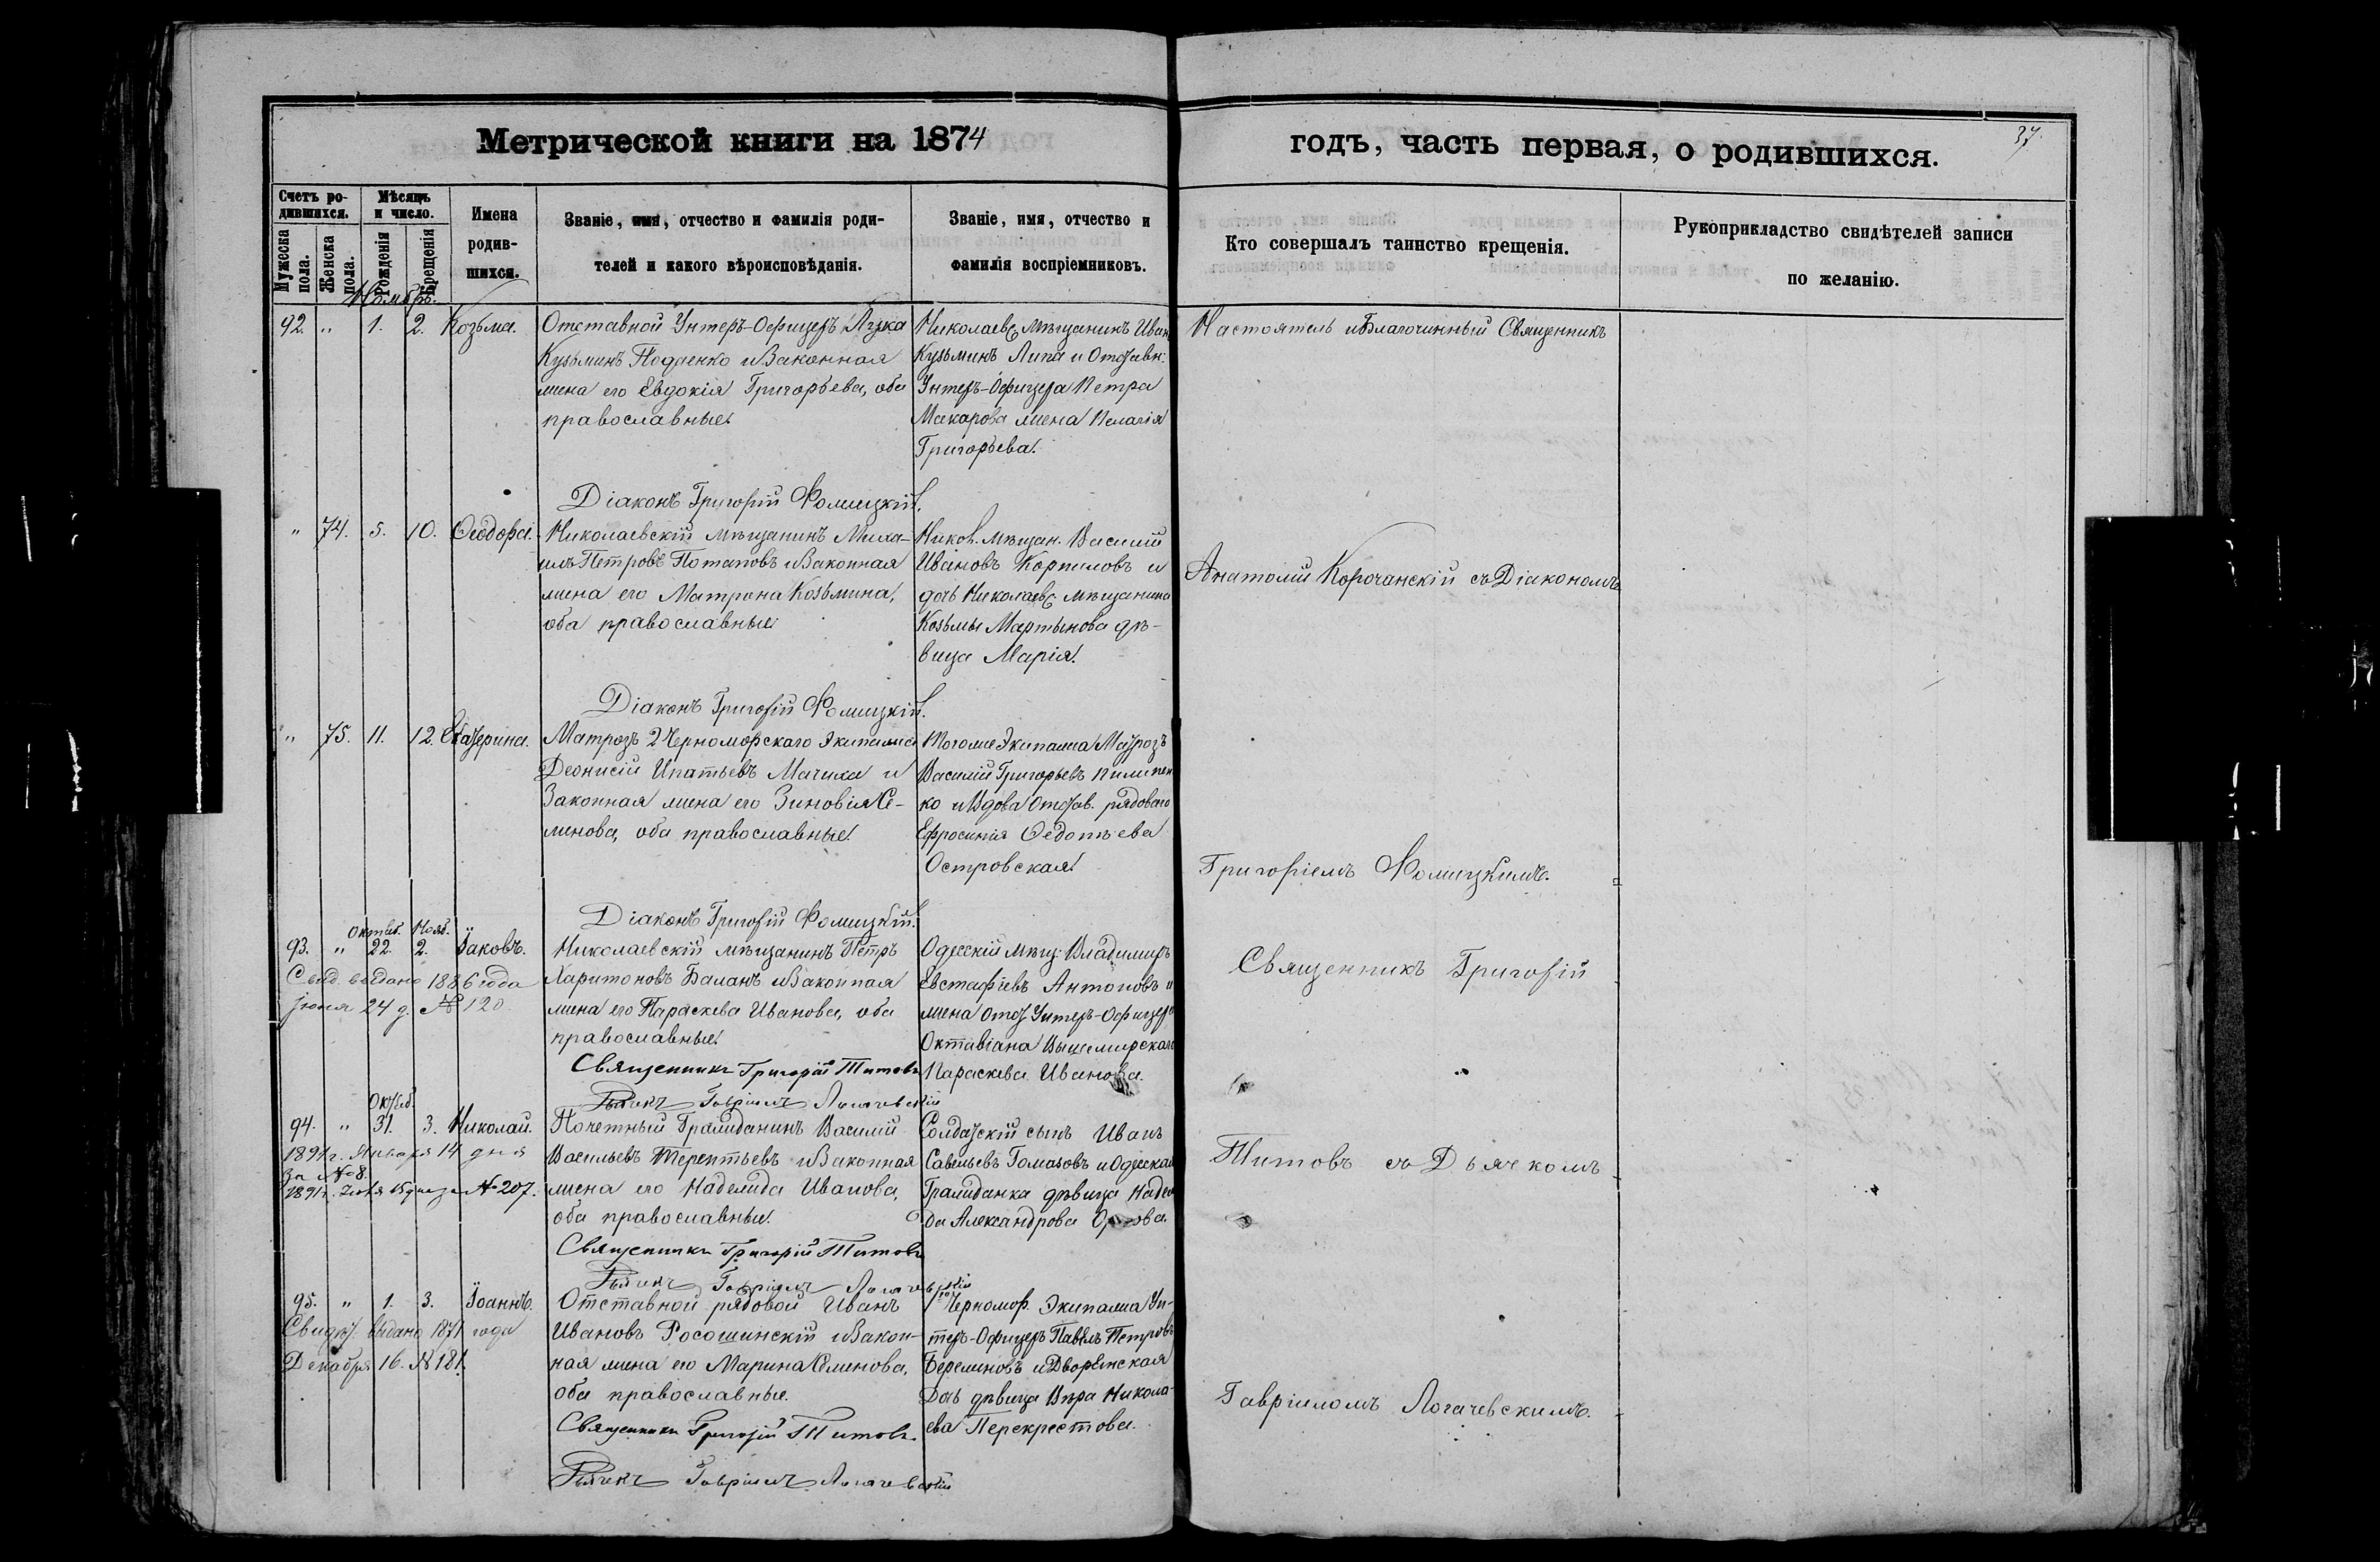 Метрической книги на 1874
годъ, часть первая, о родившихся.
37.
Счетъ родившихся.
Мѣсяцъ и число.
Имена родившихся.
Званіе, имя, отчество и фамилія родителей и какого вѣроисповѣданія.
Званіе, имя, отчество и фамилія воспріемниковъ.
Кто совершалъ таинство крещенія.
Рукоприкладство свидѣтелей записи по желанію.
Мужеска пола.
Женска пола.
Рожденія
Крещенія
Ноябрь.
92. " 1. 2. Козьма.
Отставной Унтеръ-Офицеръ Лука
Кузьминъ Подденко и Законная
жена его Евдокія Григорьева, оба
православные.
Николаевс. мѣщанинъ Иван
Кузьминъ Липа и Отстав.
Унтеръ-Офицера Петра
Макарова жена Пелагія
Григорьева.
Настоятель и Благочинный Священникъ
Діаконъ Григорій Фомицкій.
" 74. 5. 10. Ѳеодора.
Николаевскій мѣщанинъ Миха-
илъ Петровъ Потаповъ и Законная
жена его Матрона Козьмина,
оба православные
Никол. мѣщан. Василій
Ивановъ Корниловъ и
дочь Николаевс. мѣщанина
Козьмы Мартынова дѣ-
вица Марія.
Анатолій Корочанскій съ Діакономъ
Діаконъ Григорій Фомицкій.
" 75. 11. 12. Екатерина.
Матрозъ 2 Черноморскаго Экипажа
Деонисій Ипатьевъ Мачиха и
Законная жена его Зиновія Се-
менова, оба православные.
Тогоже Экипажа Матрозъ
Василій Григорьевъ Пилипен
ко и Вдова Отстав. рядоваго
Ефросинія Ѳедотьева
Островская.
Григоріемъ Фомицкимъ.
Діаконъ Григорій Фомицкій.
Октяб. Нояб.
93. " 22. 2. Іаковъ.
Свид. выдано 1886 года
Іюня 24 д. № 120
Николаевскій мѣщанинъ Петръ
Харитоновъ Баланъ и Законная
жена его Параскева Иванова, оба
православные.
Одесскій мѣщ. Владимиръ
Евстафіевъ Антоновъ и
жена Отст. Унтеръ-Офицера
Октавіана Вышемирскаго
Параскева Иванова.
Священникъ Григорій
Священникъ Григорій Титовъ
Дьячекъ Гавріилъ Логачевскій
Октяб.
94. " 31. 3. Николай.
1891 г. Января 14 дня
За № 8.
№ 207.
Почетный Гражданинъ Василій
Васильевъ Терентьевъ и Законная
жена его Надежда Иванова,
оба православные.
Солдатскій сынъ Иванъ
Савельевъ Гомазовъ и Одесская
Гражданка дѣвица Надеж
да Александрова
Титовъ съ Дьячкомъ
Священникъ Григорій Титовъ
Дьячекъ Гавріилъ Логачевскій
95. " 1. 3. Іоаннъ.
Свидѣт. выдано 1871 года
Декабря 16. № 181.
Отставной рядовой Иванъ
Ивановъ Росошинскій и Закон-
ная жена его Марина Семенова,
оба православные.
Черномор. Экипажа Ун-
теръ-Офицеръ Павелъ Петровъ
Бережновъ и Дворянская
Дочь дѣвица Вѣра Никола-
ева Перекрестова.
Гавріиломъ Логачевскимъ.
Священникъ Григорій Титовъ.
Дьячекъ Гавріилъ Логачевскій